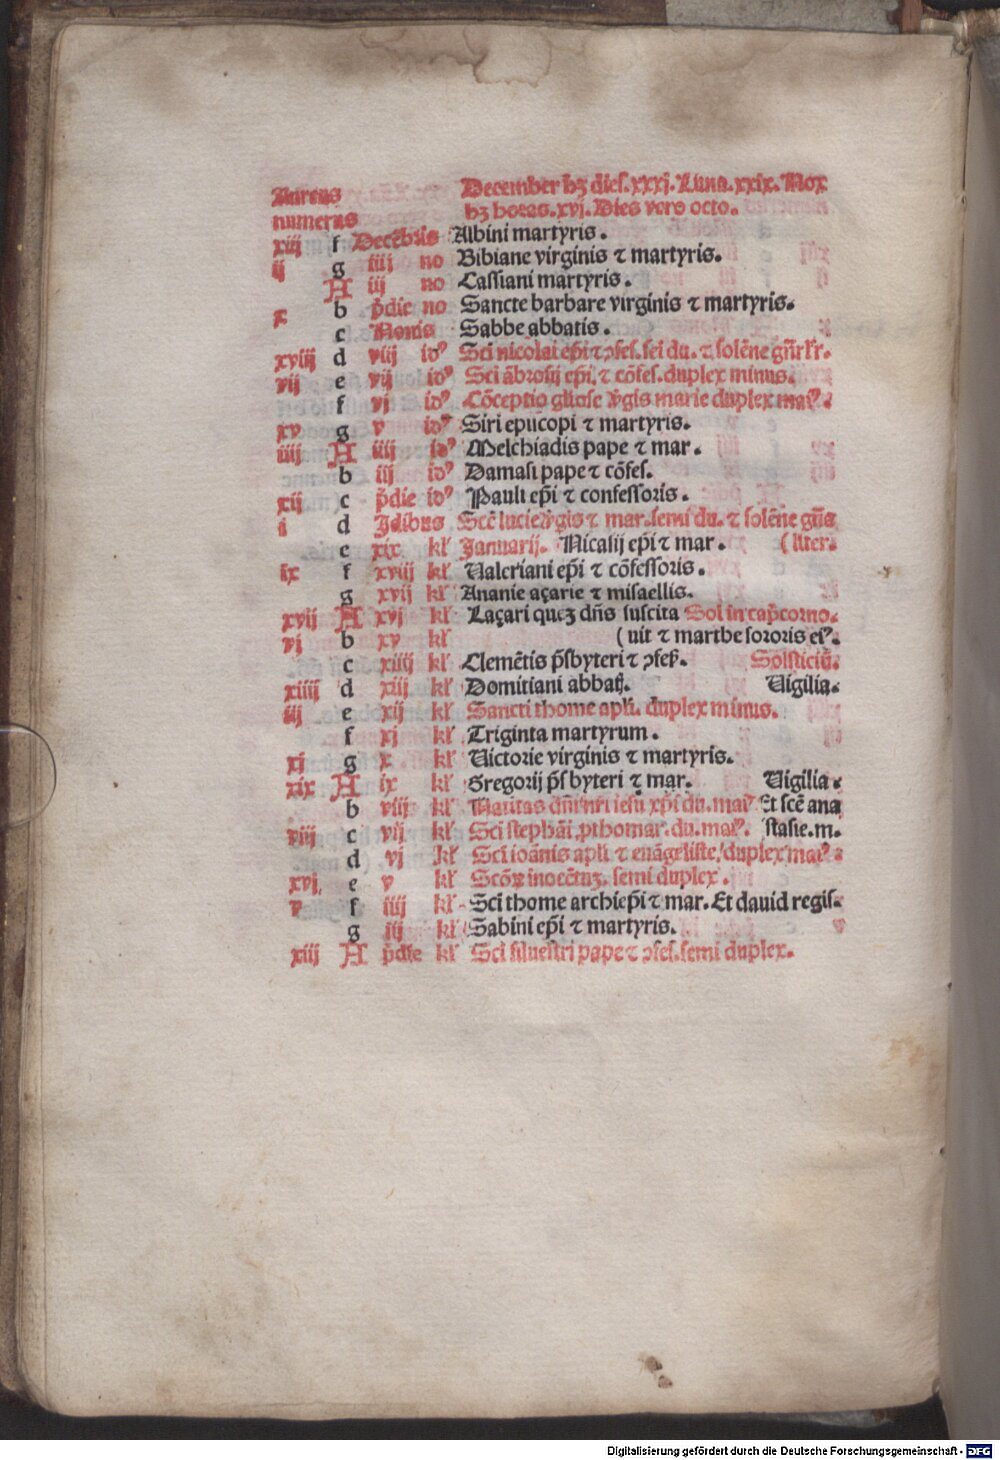 Aureus December hꝫ dies.xxxj.Luna.xxix.Nox
numerus hꝫ horas.xvj.Dies vero octo.
xiij f Decẽbris Albini martyris.
ij g iiij no Bibiane virginis ⁊ martyris.
A iij no Cassiani martyris.
x b p̃die no Sancte barbare virginis ⁊ martyris.
c Nonis Sabbe abbatis.
xviij d viij idꝰ Sci nicolai ep̃i ⁊ ↄfes. sẽi du. ⁊ solẽne gñr
vij e vij idꝰ Sci ãbrosij ep̃i. ⁊ cõfes. duplex minus.
f vj idꝰ Cõceptio gliose ṽgis marie duplex maiꝰ.
xv g v idꝰ Siri episcopi ⁊ martyris.
iiij A iiij idꝰ Melchiadis pape ⁊ mar.
b iij idꝰ Damasi pape ⁊ cõfes.
xij c p̃die idꝰ Pauli ep̃i ⁊ confessoris.
i d Jdibus Scẽ lucie ṽgis ⁊ mar. semi du. ⁊ solẽne gñs
e xix kl' Januarij. Nicasij ep̃i ⁊ mar. (liter.
ix f xviij kl' Valeriani ep̃i ⁊ cõfessoris.
g xvij kl' Ananie açarie ⁊ misaellis.
xvij A xvj kl' Laçari queꝫ dñs suscita Sol in cap̃corno.
vj b xv kl' (uit ⁊ marthe sororis eiꝰ.
c xiiij kl' Clemẽtis p̃sbyteri ⁊ ↄfes. Solsticiũ.
xiiij d xiij kl' Domitiani abbatꝭ. Vigilia.
iij e xij kl' Sancti thome apli. duplex minus.
f xj kl' Triginta martyrum.
xj g x kl' Victorie virginis ⁊ martyris.
xix A ix kl' Gregorij p̃sbyteri ⁊ mar. Vigilia.
b viij kl' Natiuitas dñi nr̃i iesu xp̃i du. maiꝰ Et scẽ ana
viij c vij kl' Sci stephãi ꝓthomar. du. maiꝰ. stasie.m.
d vj kl' Sci ioãnis apli ⁊ euãgeliste. duplex maiꝰ.
xvj. e v kl' Scõꝝ inocẽtuꝫ. semi duplex.
v f iiij kl' Sci thome archiep̃i ⁊ mar. Et dauid regis.
g iij kl' Sabini ep̃i ⁊ martyris.
xiij A p̃die kl' Sci siluestri pape ⁊ ↄfes. semi duplex.
Digitalisierung gefördert durch die Deutsche Forschungsgemeinschaft - DFG